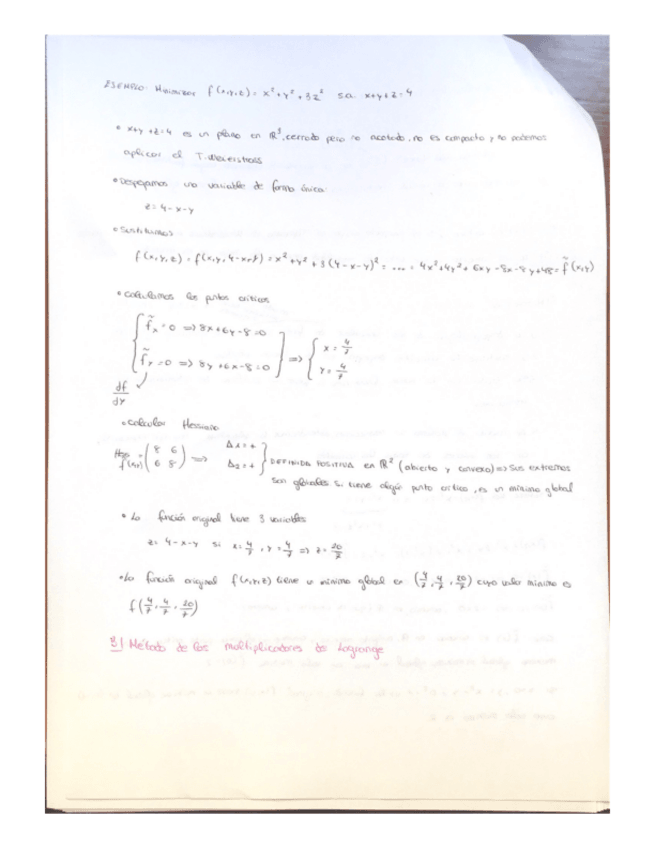 EJEMPLO: Minimizar f(x,y,z) = x² + y² + 3z² s.a. x+y+z=4
• x+y+z=4 es un plano en ℝ³, cerrado pero no acotado, no es compacto y no podemos
aplicar el T. Weierstrass
• Despejamos una variable de forma única
z = 4-x-y
• Sustituimos
f(x,y,z) = f(x,y,4-x-y) = x² + y² + 3(4-x-y)² = ... = 4x² + 4y² + 6xy - 8x - 8y + 48 = f̃(x,y)
• Calculamos los puntos críticos
f̃x = 0 ⇒ 8x + 6y - 8 = 0
f̃y = 0 ⇒ 8y + 6x - 8 = 0
⇒ { x = 4/7
y = 4/7
df/dy
• Calcular Hessiano
f(x,y) = (8 6
6 8) ⇒ Δ1 = +
Δ2 = + } DEFINIDA POSITIVA en ℝ² (abierto y convexo) ⇒ Sus extremos
son globales si tiene algún punto crítico, es un mínimo global
• La función original tiene 3 variables
z = 4-x-y si x = 4/7, y = 4/7 ⇒ z = 20/7
• La función original f(x,y,z) tiene un mínimo global en (4/7, 4/7, 20/7) cuyo valor mínimo es
f(4/7, 4/7, 20/7)
3| Método de los multiplicadores de Lagrange